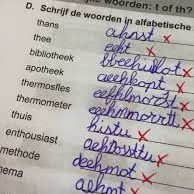 woorden: t of th?
D. Schrijf de woorden in alfabetische
thans ahnst x
thee eeht x
bibliotheek bbeehiiklot x
apotheek aeehkopt x
thermosfles eefhlmorsst x
thermometer eehmmorrtt x
thuis histu x
enthousiast aehinosttu x
methode deehmot x
ema aehmt x